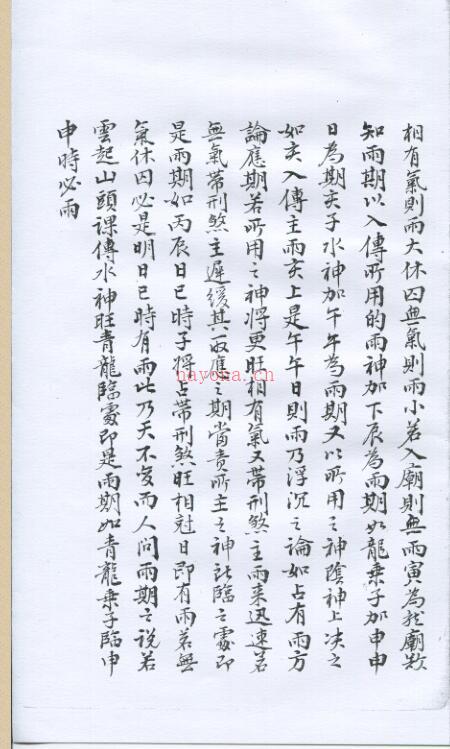 相有氣則雨大休囚無氣則雨小若入廟則無雨寅為龙廟欵
知雨期以入傳所用的雨神加下辰為雨期如龍乗子加申申
日為期亥子水神加午午為雨期又以所用之神陰神上决之
如亥入傳主雨亥上是午午日則雨乃浮沉之論如占有雨方
論應期若所用之神將更旺相有氣又帶刑煞主雨来迅速若
無氣帶刑煞主遲緩其應之期當責所主之神所臨之處即
是雨期如丙辰日巳時子將占帶刑煞旺相冠日即有雨若無
氣休囚必是明日巳時有雨此乃天不变而人問雨期之説若
雲起山頭課傳水神旺青龍臨處即是雨期如青龍乗子臨申
申時必雨
nayona.cn